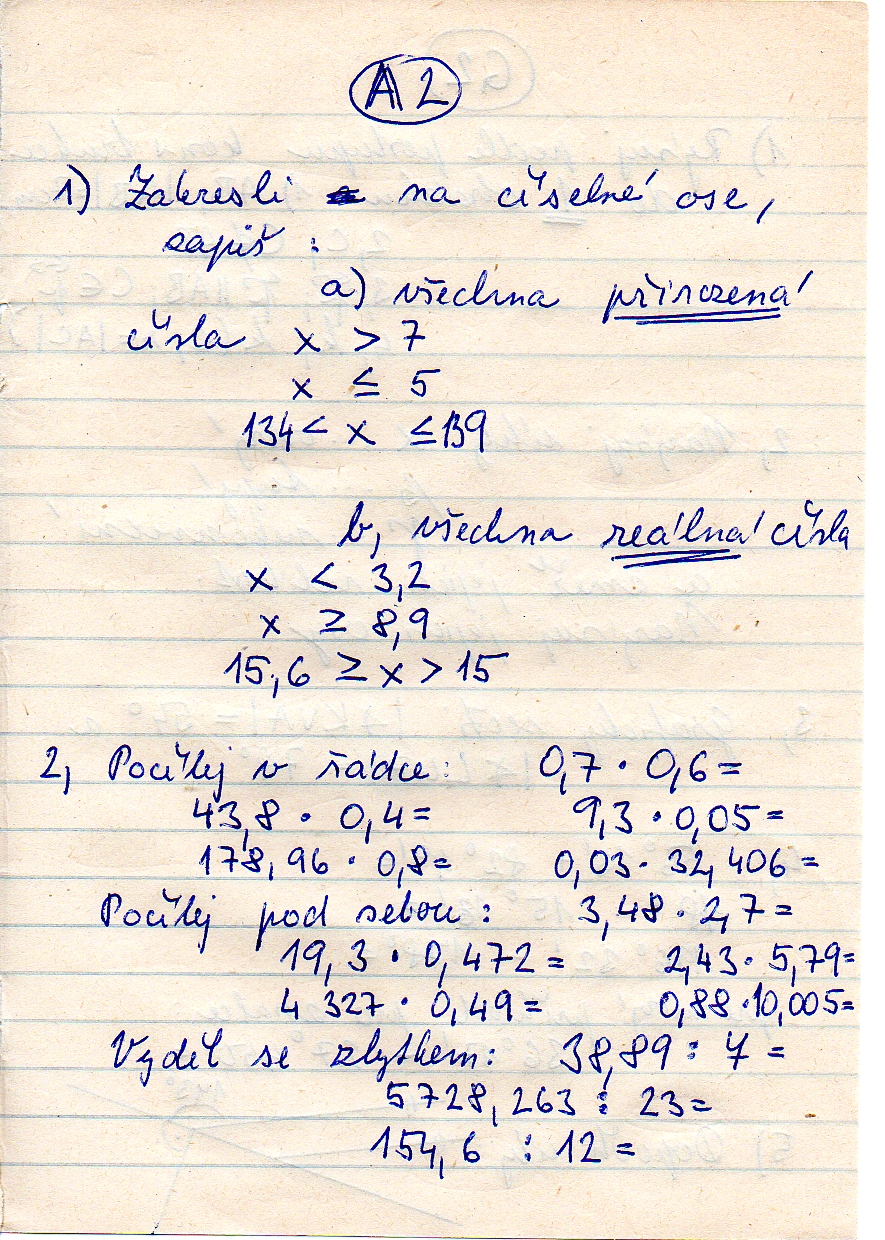 A2
1) Zakresli na číselné ose,
zapiš :
a) všechna přirozená
čísla x > 7
x ≤ 5
134 < x ≤ 139
b, všechna reálná čísla
x < 3,2
x ≥ 8,9
15,6 ≥ x > 15
2, Počítej v řádce: 0,7 · 0,6 =
43,8 · 0,4 = 9,3 · 0,05 =
178,96 · 0,8 = 0,03 · 32,406 =
Počítej pod sebou: 3,48 · 2,7 =
19,3 · 0,472 = 2,43 · 5,79 =
4 327 · 0,49 = 0,88 · 10,005 =
Vyděl se zbytkem: 38,89 : 7 =
5728,263 : 23 =
154,6 : 12 =